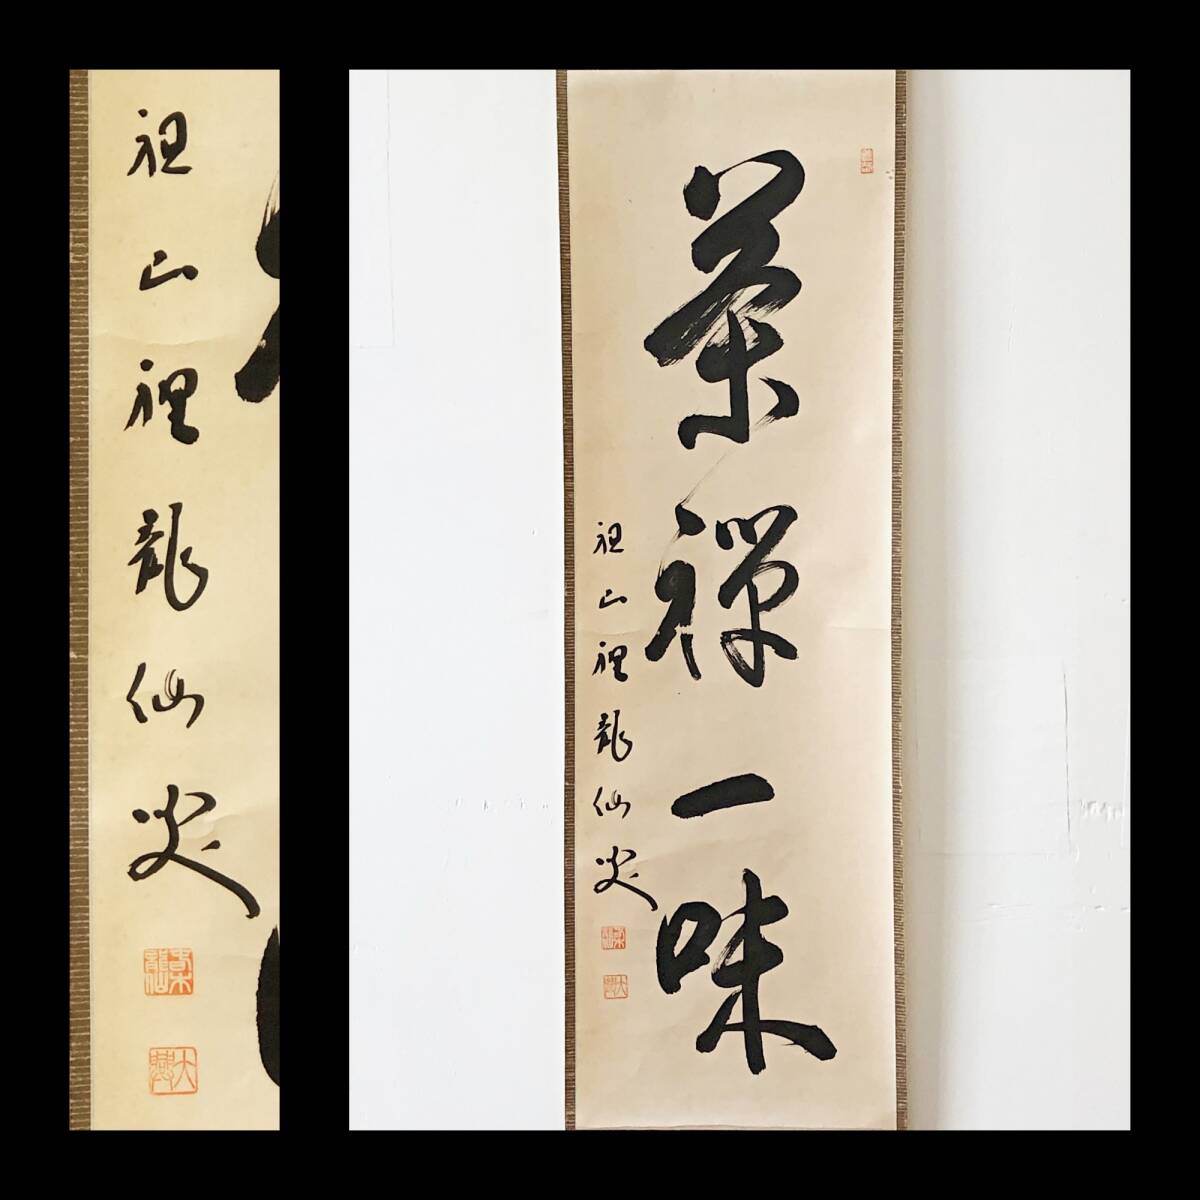 祖山裡龍仙叟
茶禅一味
祖山裡龍仙叟